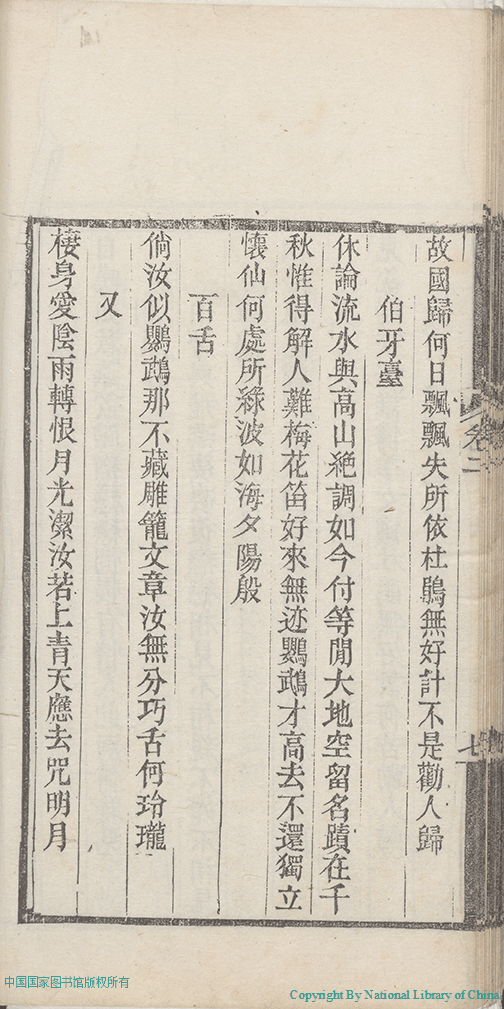 故國歸何日飄飄失所依杜鵑無好計不是勸人歸
伯牙臺
休論流水與高山絶調如今付等閒大地空留名蹟在千
秋惟得解人難梅花笛好來無迹鸚鵡才高去不還獨立
懷仙何處所綠波如海夕陽殷
百舌
倘汝似鸚鵡那不藏雕籠文章汝無分巧舌何玲瓏
又
棲身愛陰雨轉恨月光潔汝若上青天應去咒明月
卷二
七
中国国家图书馆版权所有
Copyright By National Library of China